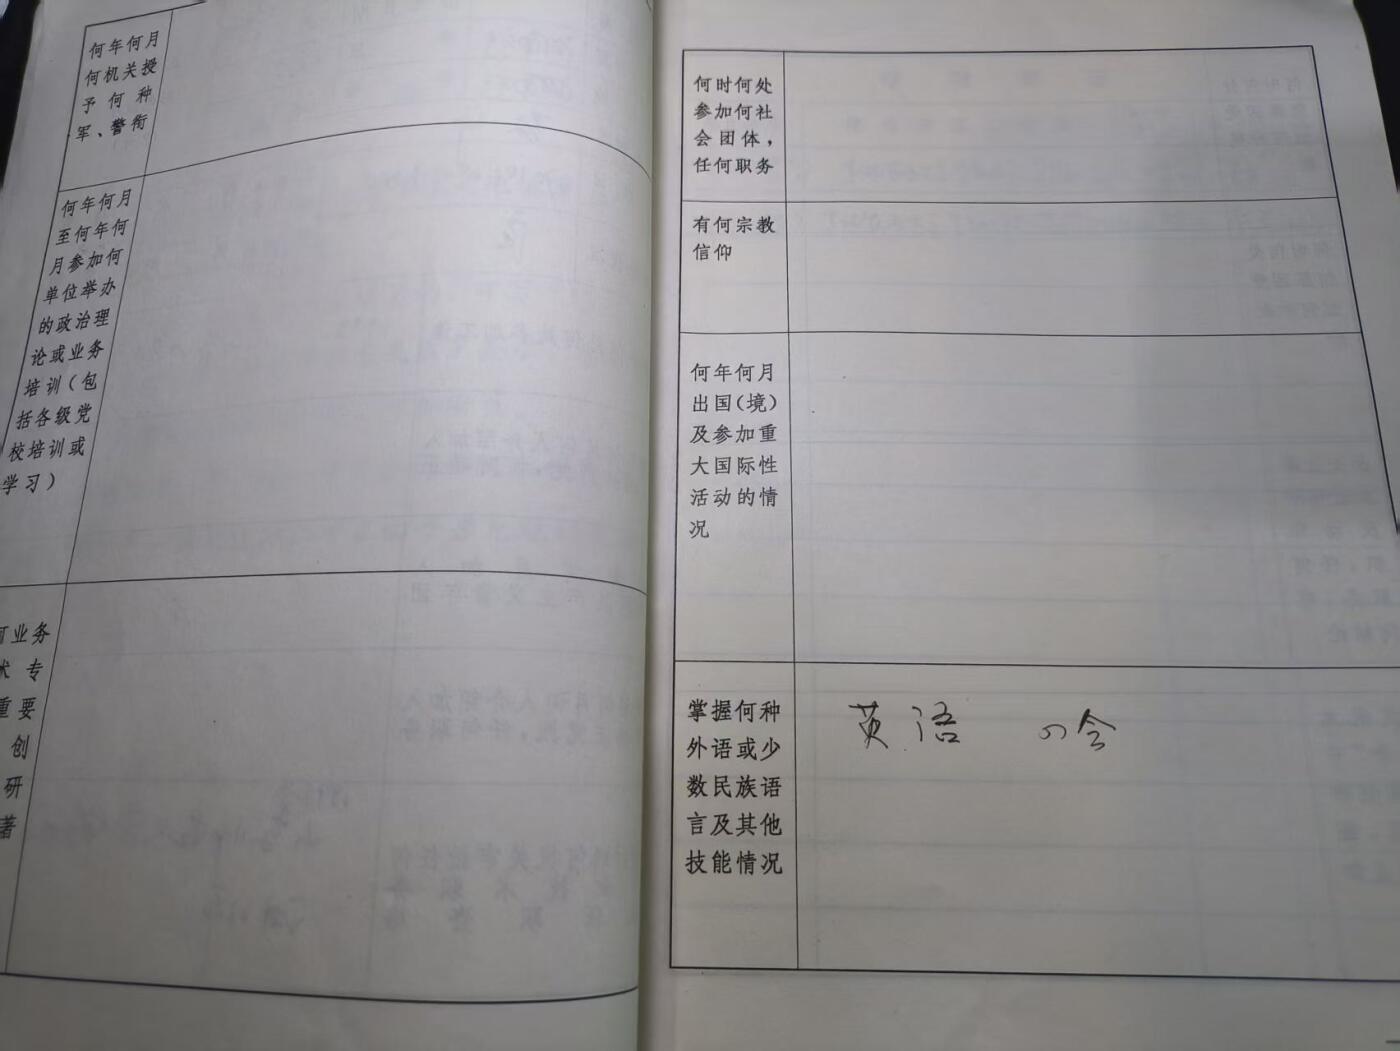 何年何月
何机关授
予何种
军、警衔
何年何月
至何年何
月参加何
单位举办
的政治理
论或业务
培训(包
括各级党
校培训或
学习)
何业务
术专
重要
创
研
著
何时何处
参加何社
会团体，
任何职务
有何宗教
信仰
何年何月
出国(境)
及参加重
大国际性
活动的情
况
掌握何种
外语或少
数民族语
言及其他
技能情况
英语 四会